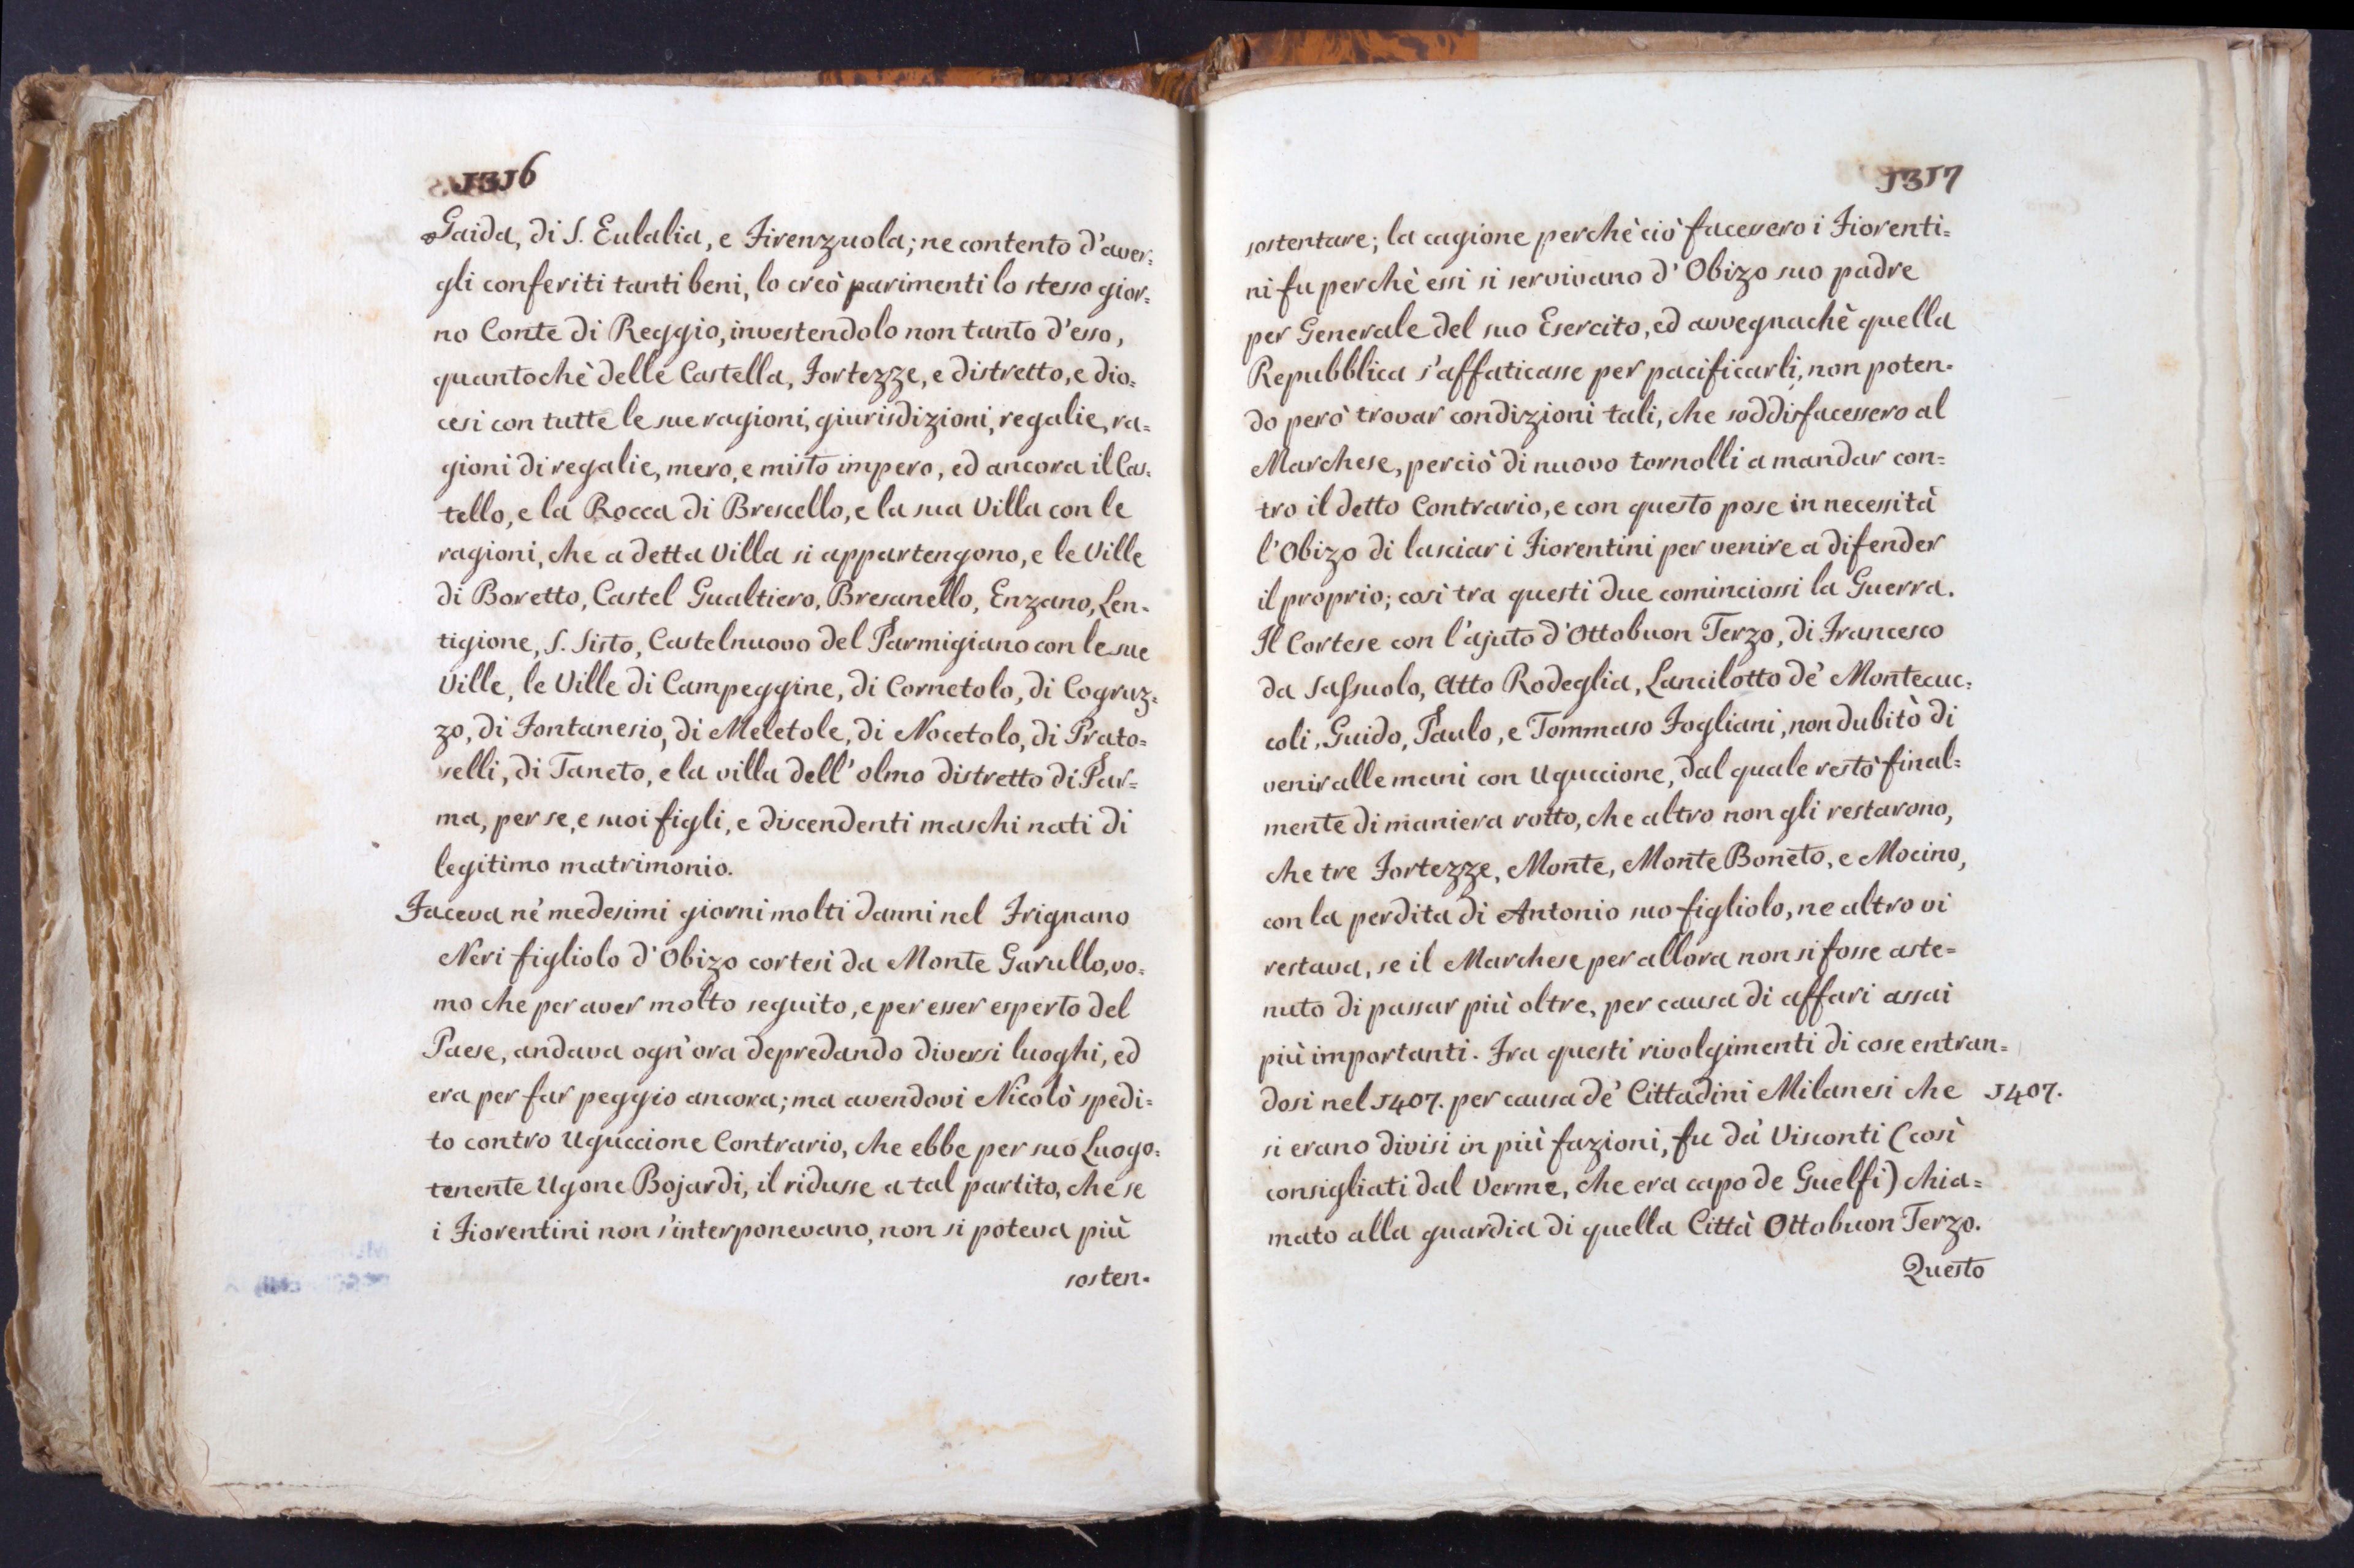 1316
Gaida, di S. Eulalia, e Firenzuola; ne contento d'aver=
gli conferiti tanti beni, lo creò parimenti lo stesso gior=
no Conte di Reggio, investendolo non tanto d'esso,
quantochè delle Castella, Fortezze, e distretto, e dio=
cesi con tutte le sue ragioni, giurisdizioni, regalie, ra=
gioni di regalie, mero, e misto impero, ed ancora il Cas=
tello, e la Rocca di Brescello, e la sua Villa con le
ragioni, che a detta Villa si appartengono, e le Ville
di Boretto, Castel Gualtiero, Bresanello, Enzano, Len=
tigione, S. Sisto, Castelnuovo del Parmigiano con le sue
Ville, le Ville di Campeggine, di Cornetolo, di Cogruz=
zo, di Fontanesio, di Meletole, di Nocetolo, di Prato=
selli, di Taneto, e la villa dell'olmo distretto di Par=
ma, per se, e suoi figli, e discendenti maschi nati di
legitimo matrimonio.
Faceva ne' medesimi giorni molti danni nel Frignano
Neri figliolo d'Obizo cortesi da Monte Garullo, vo=
mo che per aver molto seguito, e per esser esperto del
Paese, andava ogn'ora depredando diversi luoghi, ed
era per far peggio ancora; ma avendovi Nicolò spedi=
to contro Uguccione Contrario, che ebbe per suo Luogo=
tenente Ugone Bojardi, il ridusse a tal partito, che se
i Fiorentini non s'interponevano, non si poteva più
sosten=
1317
sostentare; la cagione perchè ciò facessero i Fiorenti=
ni fu perchè essi si servivano d'Obizo suo padre
per Generale del suo Esercito, ed avvegnachè quella
Repubblica s'affaticasse per pacificarli, non poten=
do però trovar condizioni tali, che soddisfacessero al
Marchese, perciò di nuovo tornolli a mandar con=
tro il detto Contrario, e con questo pose in necessità
l'Obizo di lasciar i Fiorentini per venire a difender
il proprio; così tra questi due cominciossi la Guerra.
Il Cortese con l'ajuto d'Ottobuon Terzo, di Francesco
da Sassuolo, Atto Rodeglia, Lancilotto de' Montecuc=
coli, Guido, Paulo, e Tommaso Fogliani, non dubitò di
venir alle mani con Uguccione, dal quale restò final=
mente di maniera rotto, che altro non gli restarono,
che tre Fortezze, Monte, Monte Boneto, e Mocino,
con la perdita di Antonio suo figliolo, ne altro vi
restava, se il Marchese per allora non si fosse aste=
nuto di passar più oltre, per causa di affari assai
più importanti. Fra questi rivolgimenti di cose entran=
dosi nel 1407. per causa de' Cittadini Milanesi che 1407.
si erano divisi in più fazioni, fu da' Visconti (così
consigliati dal Verme, che era capo de Guelfi) chia=
mato alla guardia di quella Città Ottobuon Terzo.
Questo